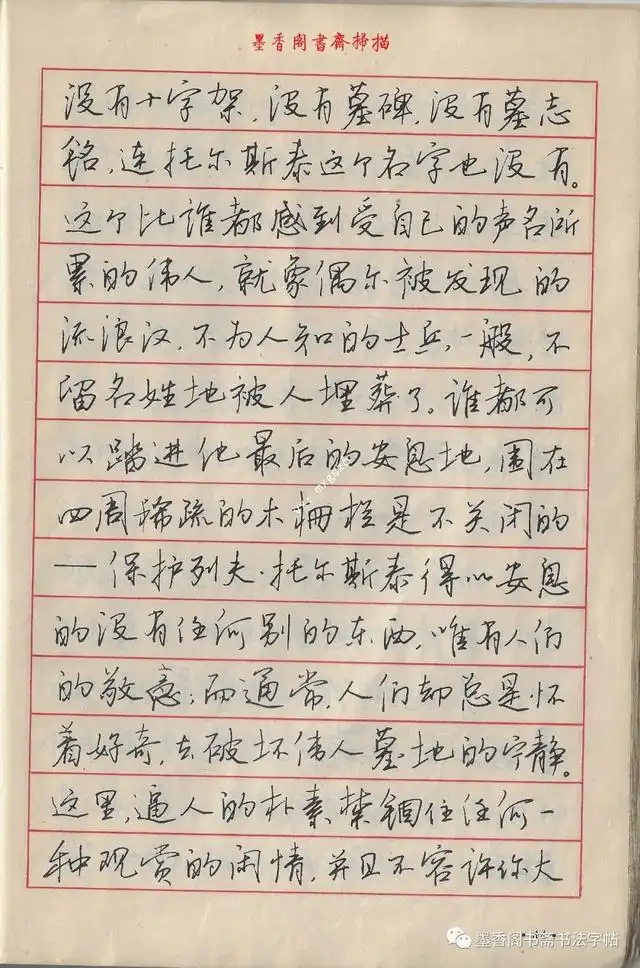 墨香阁書齋掃描
没有十字架,没有墓碑,没有墓志
铭,连托尔斯泰这个名字也没有。
这个比谁都感到受自己的声名所
累的伟人,就象偶尔被发现的
流浪汉,不为人知的士兵,一般,不
留名姓地被人埋葬了。谁都可
以踏进他最后的安息地,围在
四周稀疏的木栅栏是不关闭的
——保护列夫·托尔斯泰得以安息
的没有任何别的东西,唯有人们
的敬意;而通常,人们却总是怀
着好奇,去破坏伟人墓地的宁静。
这里,逼人的朴素禁锢住任何一
种观赏的闲情,并且不容许你大
墨香阁书斋书法字帖